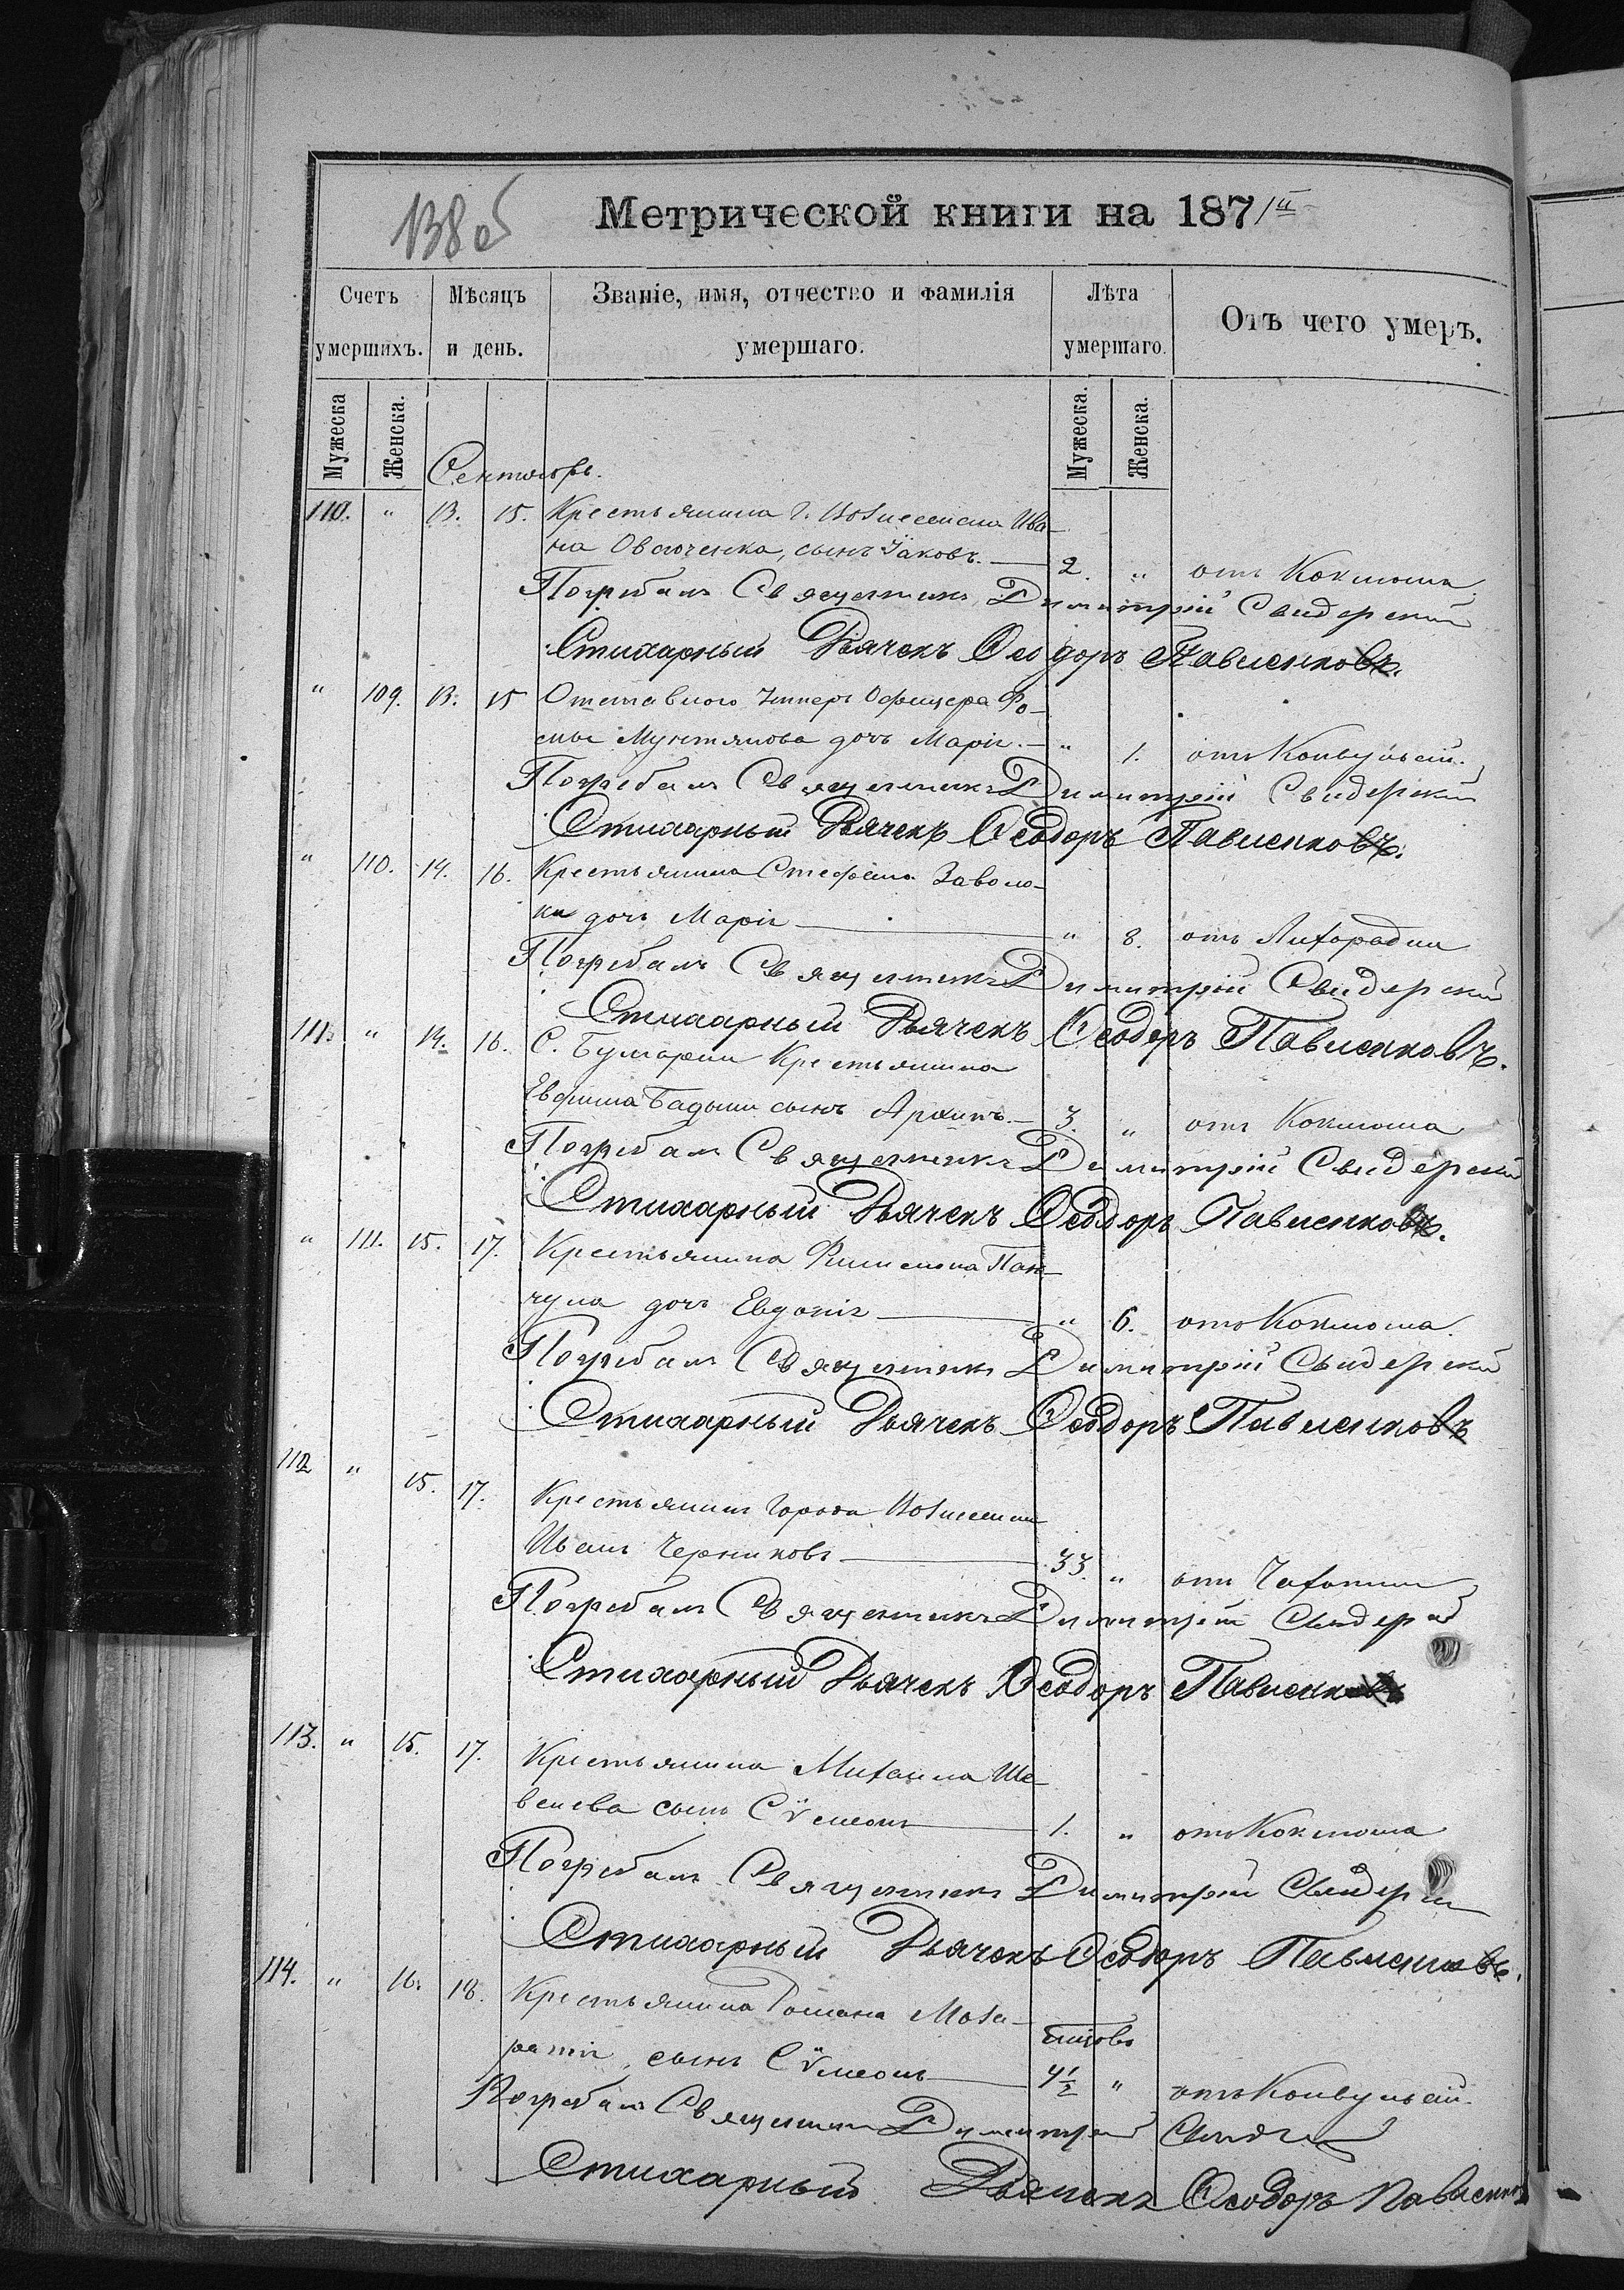 138 об
Метрической книги на 1871й
Счетъ умершихъ. Мѣсяцъ и день. Званіе, имя, отчество и фамилія умершаго. Лѣта умершаго. Отъ чего умеръ.
Мужеска Женска. Мужеска. Женска.
Сентябрь.
110. " 13. 15. Крестьянина г. Вознесенска Ива-
на Овсюченка, сынъ Іаковъ. — 2. " отъ Коклюша.
Погребалъ Священникъ Димитрій Свидерскій
Стихарный Дьячекъ Ѳеодоръ Павленковъ.
" 109. 13. 15 Отставного Унтеръ Офицера Ѳо-
мы Мунтянова дочь Марія. — " 1. отъ Конвульсій.
Погребалъ Священникъ Димитрій Свидерскій
Стихарный Дьячекъ Ѳеодоръ Павленковъ.
" 110. 14. 16. Крестьянина Стефана Заволо-
ки дочь Марія — " 8. отъ Лихорадки
Погребалъ Священникъ Димитрій Свидерскій
Стихарный Дьячекъ Ѳеодоръ Павленковъ.
111. " 14. 16. С. Булгарки Крестьянина
Евфима Бадыши сынъ Архипъ. — 3. " отъ Коклюша
Погребалъ Священникъ Димитрій Свидерскій
Стихарный Дьячекъ Ѳеодоръ Павленковъ.
" 111. 15. 17. Крестьянина Филимона Пан-
чула дочь Евдокія — " 6. отъ Коклюша.
Погребалъ Священникъ Димитрій Свидерскій
Стихарный Дьячекъ Ѳеодоръ Павленковъ
112 " 15. 17. Крестьянинъ Города Вознесенска
Иванъ Черниковъ — 33. " отъ Чахотки
Погребалъ Священникъ Димитрій Свидерскій
Стихарный Дьячекъ Ѳеодоръ Павленковъ
113. " 15. 17. Крестьянина Михаила Ше-
велева сынъ Сѵмеонъ — 1. " отъ Коклюша
Погребалъ Священникъ Димитрій Свидерскій
Стихарный Дьячекъ Ѳеодоръ Павленковъ.
114. " 16. 18. Крестьянина Романа
сынъ Сѵмеонъ — 4½ " отъ Конвульсій.
Погребалъ Священникъ Димитрій Свидерскій
Стихарный Дьячекъ Ѳеодоръ Павленковъ